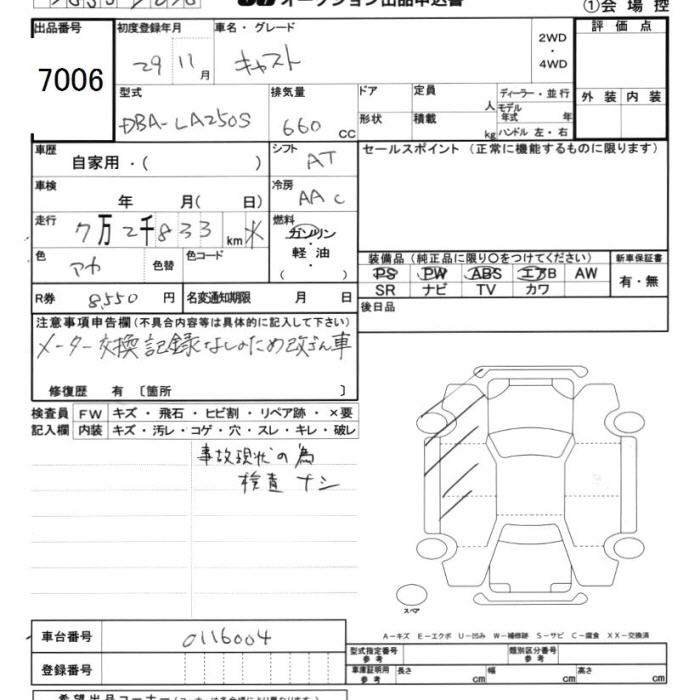 オークション出品申込書
①会場控
出品番号
7006
初度登録年月
29 11月
車名・グレード
キャスト
2WD
・
4WD
評価点
外装 内装
型式
DBA-LA250S
排気量
660 cc
ドア
定員 人
ディーラー・並行
モデル年式 年
形状
積載 kg
ハンドル 左・右
車歴
自家用・( )
シフト
AT
セールスポイント(正常に機能するものに限ります)
車検
年 月( 日)
冷房
AAC
走行
7万2千833 km
燃料
ガソリン
・
軽油
( )
色
アカ
色替
色コード
装備品(純正品に限り○をつけてください)
新車保証書
PS PW ABS エアB AW
有・無
SR ナビ TV カワ
R券 8,550円
名変通知期限 月 日
後日品
注意事項申告欄(不具合内容等は具体的に記入して下さい)
メーター交換記録なしのため改ざん車
修復歴 有 〔箇所 〕
検査員記入欄
FW キズ・飛石・ヒビ割・リペア跡・×要
内装 キズ・汚レ・コゲ・穴・スレ・キレ・破レ
事故現状の為
検査ナシ
スペア
A-キズ E-エクボ U-凹み W-補修跡 S-サビ C-腐食 XX-交換済
車台番号
0116004
型式指定番号 参考
類別区分番号 参考
登録番号
車庫証明用 参考
長さ cm 幅 cm 高さ cm
希望出品コーナー